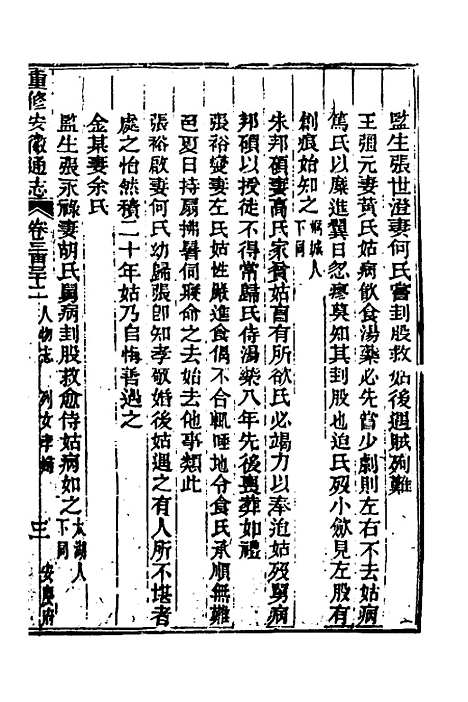 監生張世澄妻何氏嘗刲股救姑後遇賊殉難
王趯元妻黃氏姑病飲食湯藥必先嘗少劇則左右不去姑病
篤氏以糜進翼日忽瘳莫知其刲股也迨氏歿小歛見左股有
創痕始知之桐城人下同
朱邦碩妻高氏家貧姑盲有所欲氏必竭力以奉迨姑歿舅病
邦碩以授徒不得常歸氏侍湯藥八年先後喪葬如禮
張裕燮妻左氏姑性嚴進食偶不合輒唾地令食氏承順無難
色夏日持扇拂暑伺寢命之去始去他事類此
張裕啟妻何氏幼歸張即知孝敬婚後姑遇之有人所不堪者
處之怡然積二十年姑乃自悔善遇之
金某妻余氏
監生張永祿妻胡氏舅病刲股救愈侍姑病如之太湖人下同
重修安徽通志 卷三百三十二 人物志 列女孝婦 三 安慶府